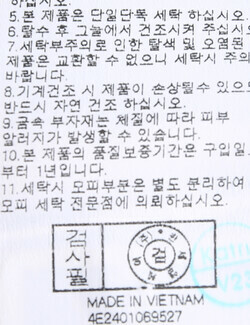 하십시오.
5.본 제품은 단일단독 세탁 하십시오.
6.탈수 후 그늘에서 건조시켜 주십시
7.세탁부주의로 인한 탈색 및 오염된
제품은 교환할 수 없으니 세탁시 주의
바랍니다.
8.기계건조 시 제품이 손상될수 있으므
반드시 자연 건조 하십시오.
9.금속 부자재는 체질에 따라 피부
알러지가 발생할 수 있습니다.
10.본 제품의 품질보증기간은 구입일
부터 1년입니다.
11.세탁시 모피부분은 별도 분리하여
모피 세탁 전문점에 의뢰하십시오.
검사품
검
MADE IN VIETNAM
4E2401069527
V23